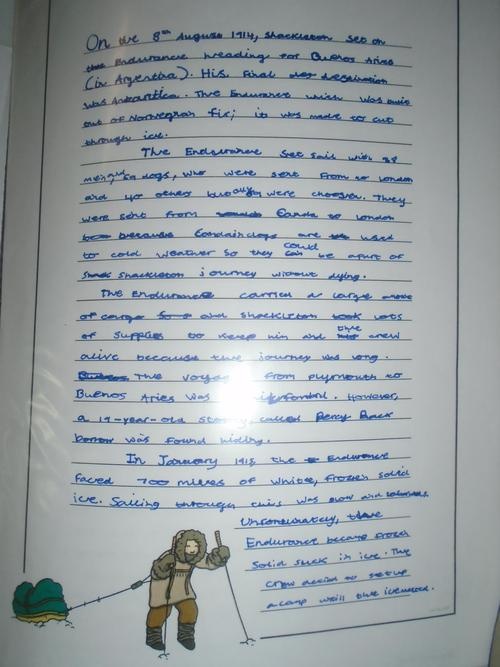 On the 8th August 1914, Shackleton set on
the Endurance heading for Buenos Aries
(in Argentina). His final destination
was Antarctica. The Endurance which was built
out of Norwegian fir; it was made to cut
through ice.
The Endurance set sail with 28
men and, 69 dogs, who were sent from to London
and 40 others were choosen. They
were sent from Canda to London
because Candain dogs are used
to cold weather so they could be apart of
Shackleton journey without dying.
The Endurance carried a large
of cargo and Shackleton took lots
of supplies to keep him and crew
alive because the journey was long.
The voyage from Plymouth to
Buenos Aries was However,
a 19-year-old called Percy Black
borrow was found hiding.
In January 1915 the Endurance
faced 700 miles of white, frozen solid
ice. Sailing through this was slow and
Unforunately, the
Endurance became frozen
solid stuck in ice. The
crew to set up
a camp the ice